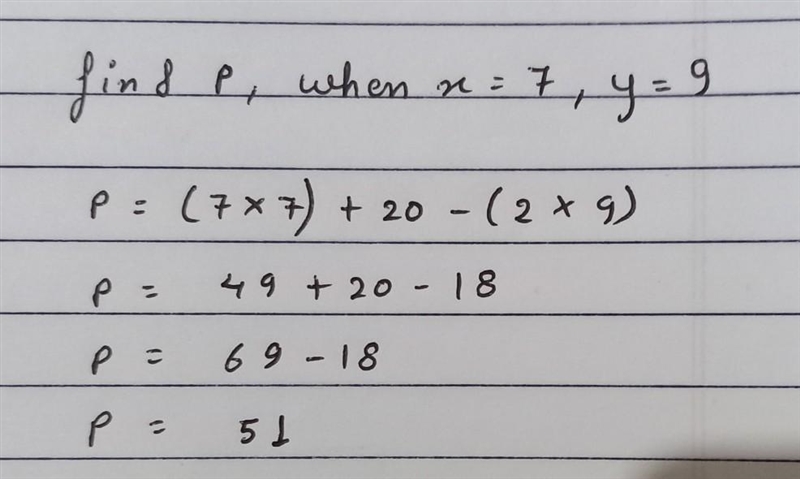 find P, when x = 7, y = 9
P = (7 × 7) + 20 - (2 × 9)
P = 49 + 20 - 18
P = 69 - 18
P = 51